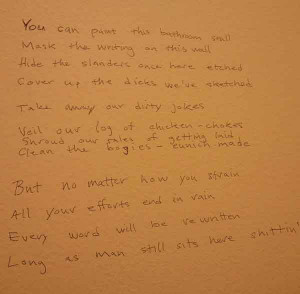 You can paint this bathroom wall
Mask the writing on this wall
Hide the slanders once here etched
Cover up the dicks we've sketched
Take away our dirty jokes
Veil our log of chicken-chokes
Shroud our tales of getting laid
Clean the bogies - eunich-made
But no matter how you strain
All your efforts end in vain
Every word will be rewritten
Long as man still sits here shittin'